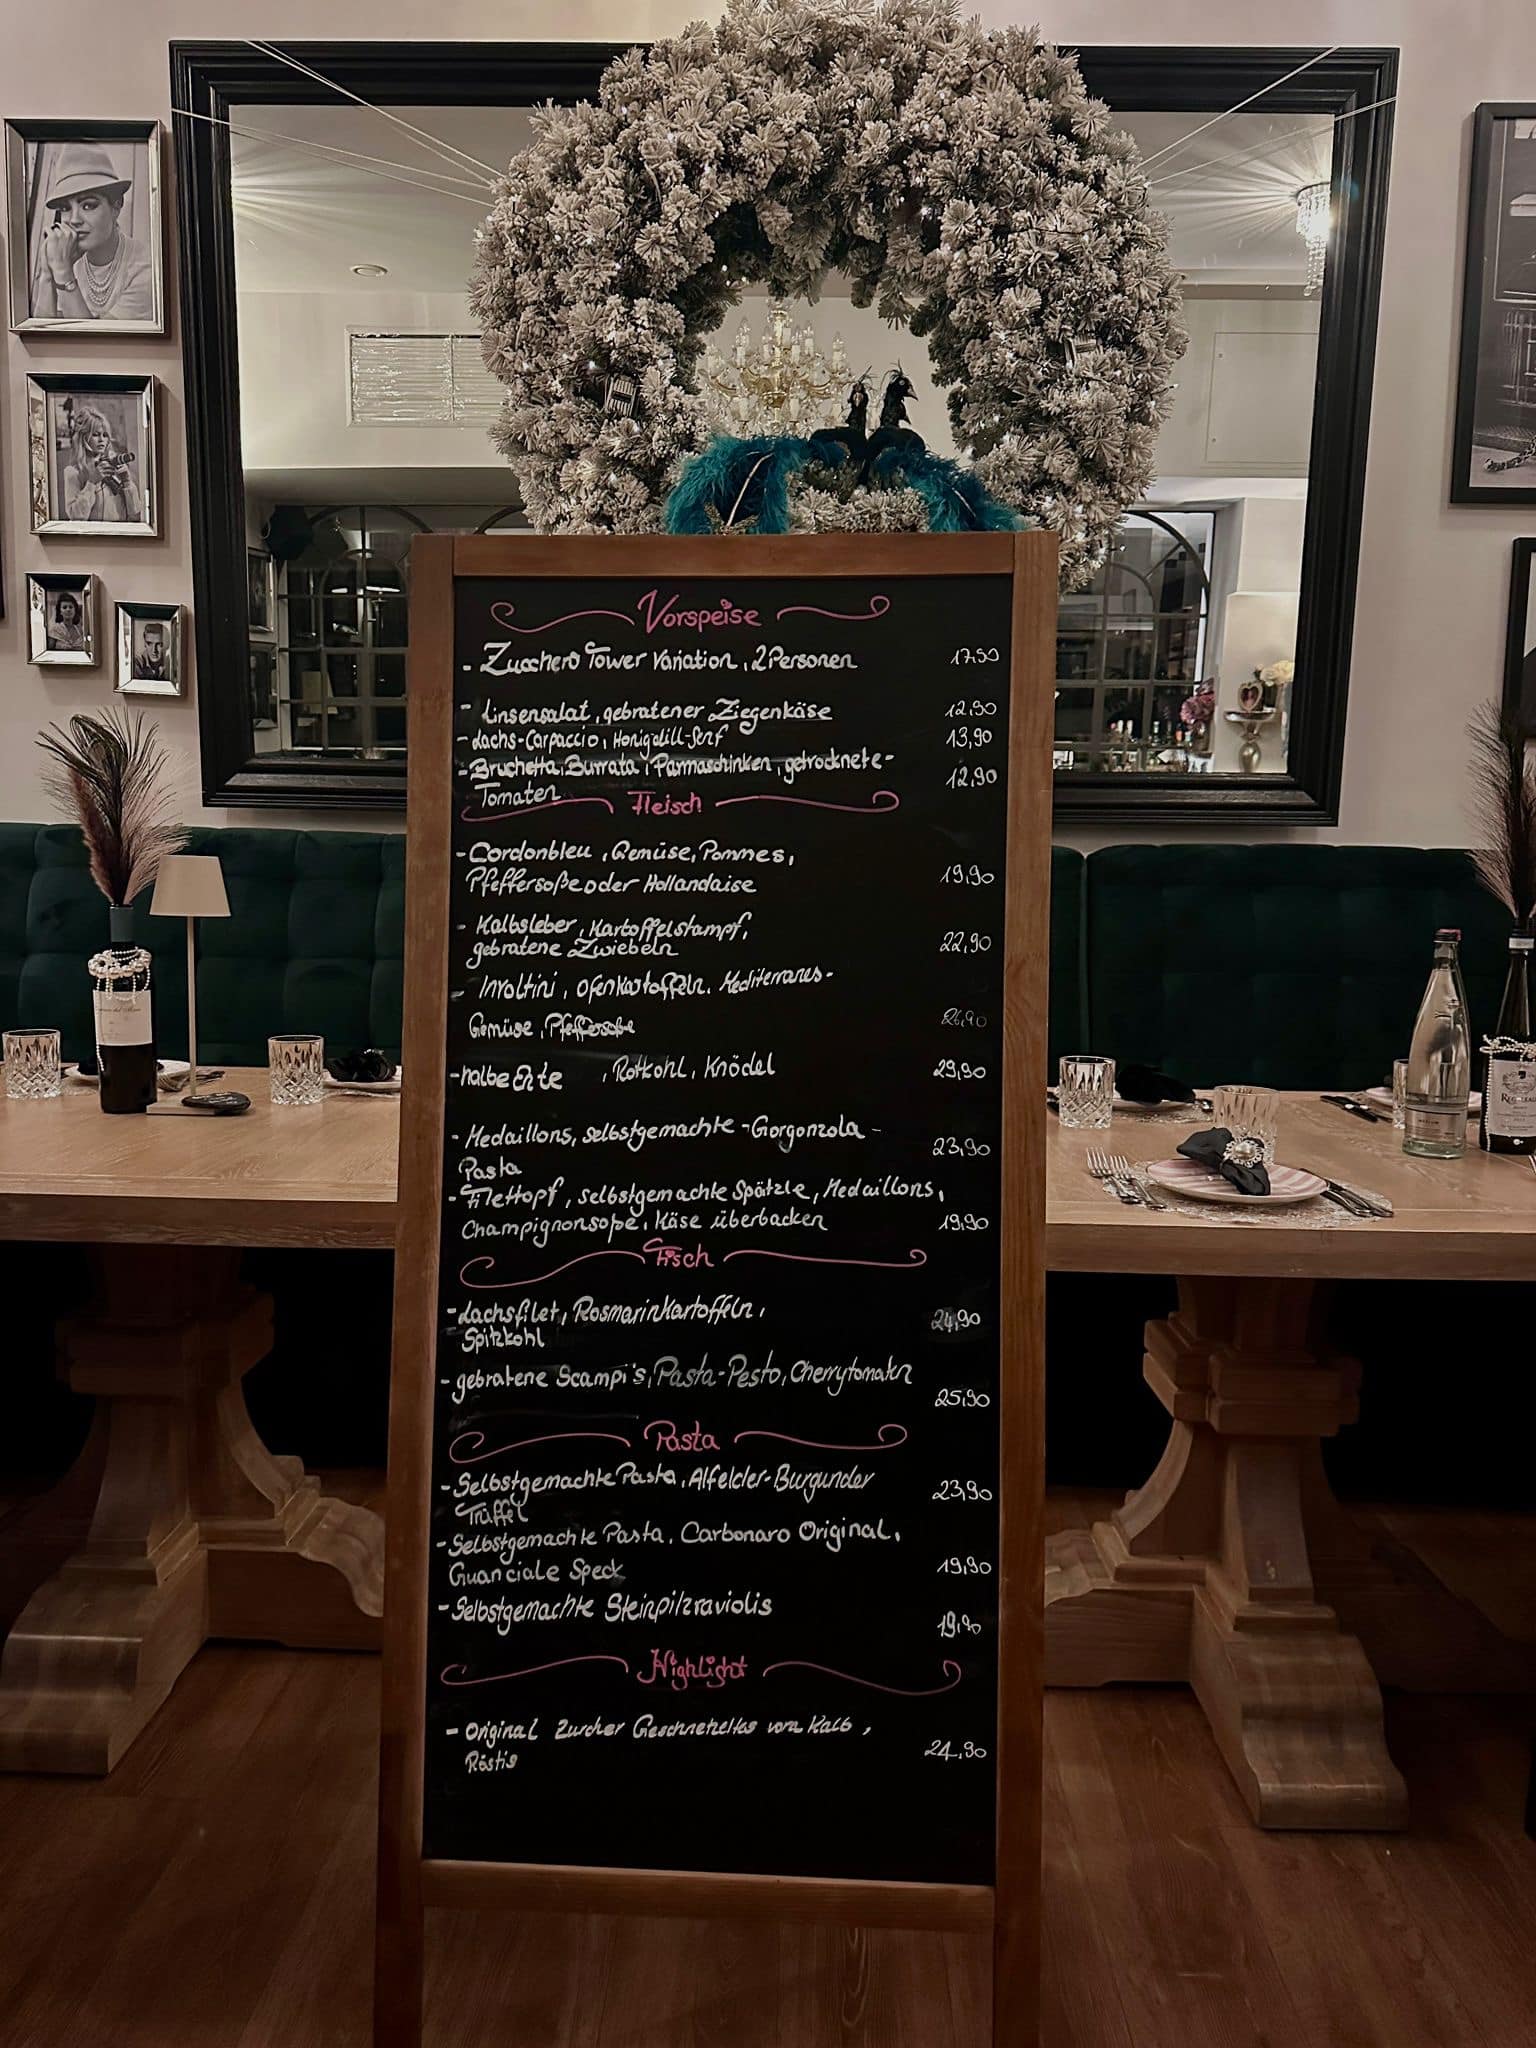 Vorspeise
- Zucchero Tower Variation, 2 Personen 17,90
- Linsensalat, gebratener Ziegenkäse 12,90
- Lachs-Carpaccio, Honigdill-Senf 13,90
- Bruchetta, Burrata, Parmaschinken, getrocknete- 12,90
Tomaten
Fleisch
- Cordonbleu, Gemüse, Pommes,
Pfeffersoße oder Hollandaise 19,90
- Kalbsleber, Kartoffelstampf,
gebratene Zwiebeln 22,90
- Involtini, Ofenkartoffeln, Mediterranes-
Gemüse, Pfeffersoße 26,90
- halbe Ente, Rotkohl, Knödel 29,90
- Medaillons, selbstgemachte -Gorgonzola- 23,90
Pasta
- Filettopf, selbstgemachte Spätzle, Medaillons,
Champignonsoße, Käse überbacken 19,90
Fisch
- Lachsfilet, Rosmarinkartoffeln, 24,90
Spitzkohl
- gebratene Scampi's, Pasta-Pesto, Cherrytomaten
25,90
Pasta
- Selbstgemachte Pasta, Alfelder-Burgunder 23,90
Trüffel
- Selbstgemachte Pasta, Carbonara Original,
Guanciale Speck 19,90
- Selbstgemachte Steinpilzraviolis 19,90
Highlight
- Original Zurcher Geschnetzeltes vom Kalb,
Röstis 24,90